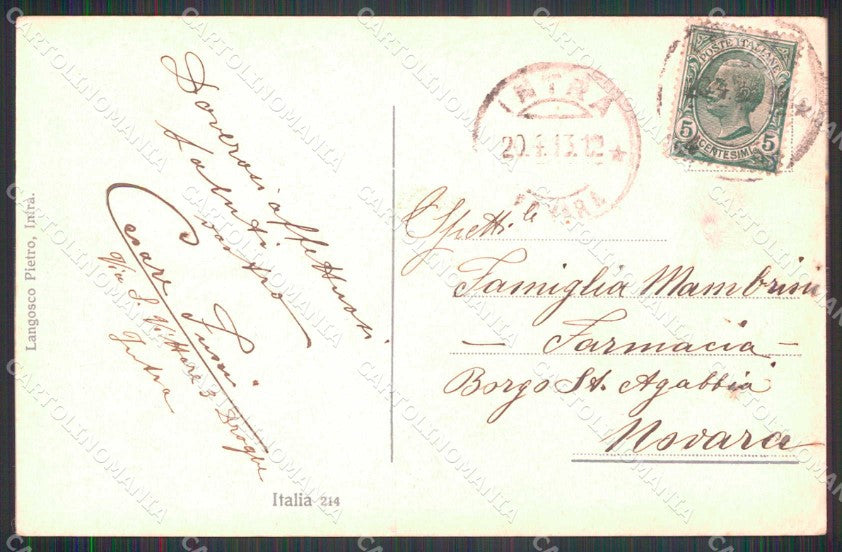 Doverosi affettuosi
saluti
vostro
Cesare
Via S. Vittore 3
Intra
Langosco Pietro, Intra.
Italia 214
INTRA
20.4.13.12
NOVARA
POSTE ITALIANE
5 CENTESIMI 5
Spett.ile
Famiglia Mambrini
- Farmacia -
Borgo St. Agabbia
Novara
CARTOLINOMANIA